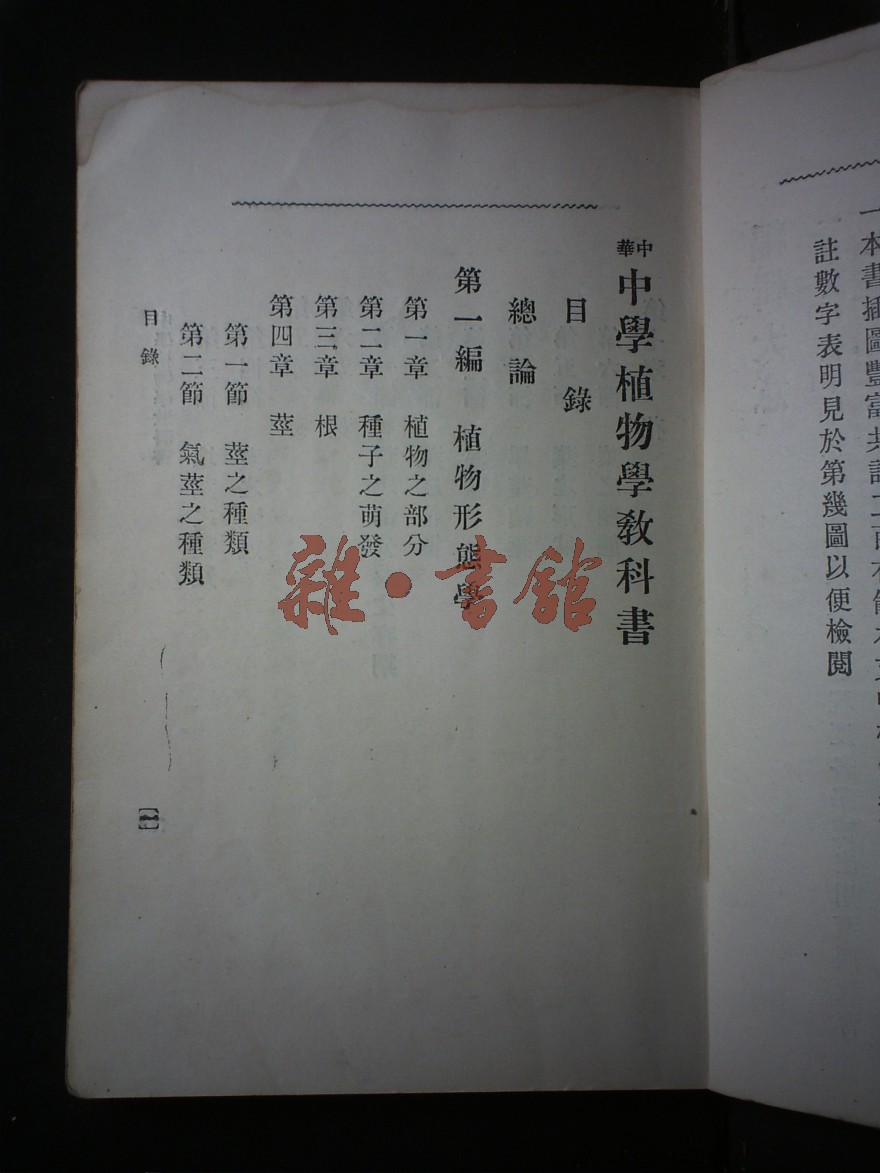 一本書插圖豐富共計二百
註數字表明見於第幾圖以便檢閱
中華
中學植物學教科書
目錄
總論
第一編 植物形態學
第一章 植物之部分
第二章 種子之萌發
第三章 根
第四章 莖
第一節 莖之種類
第二節 氣莖之種類
目錄
【一】
雜·書館